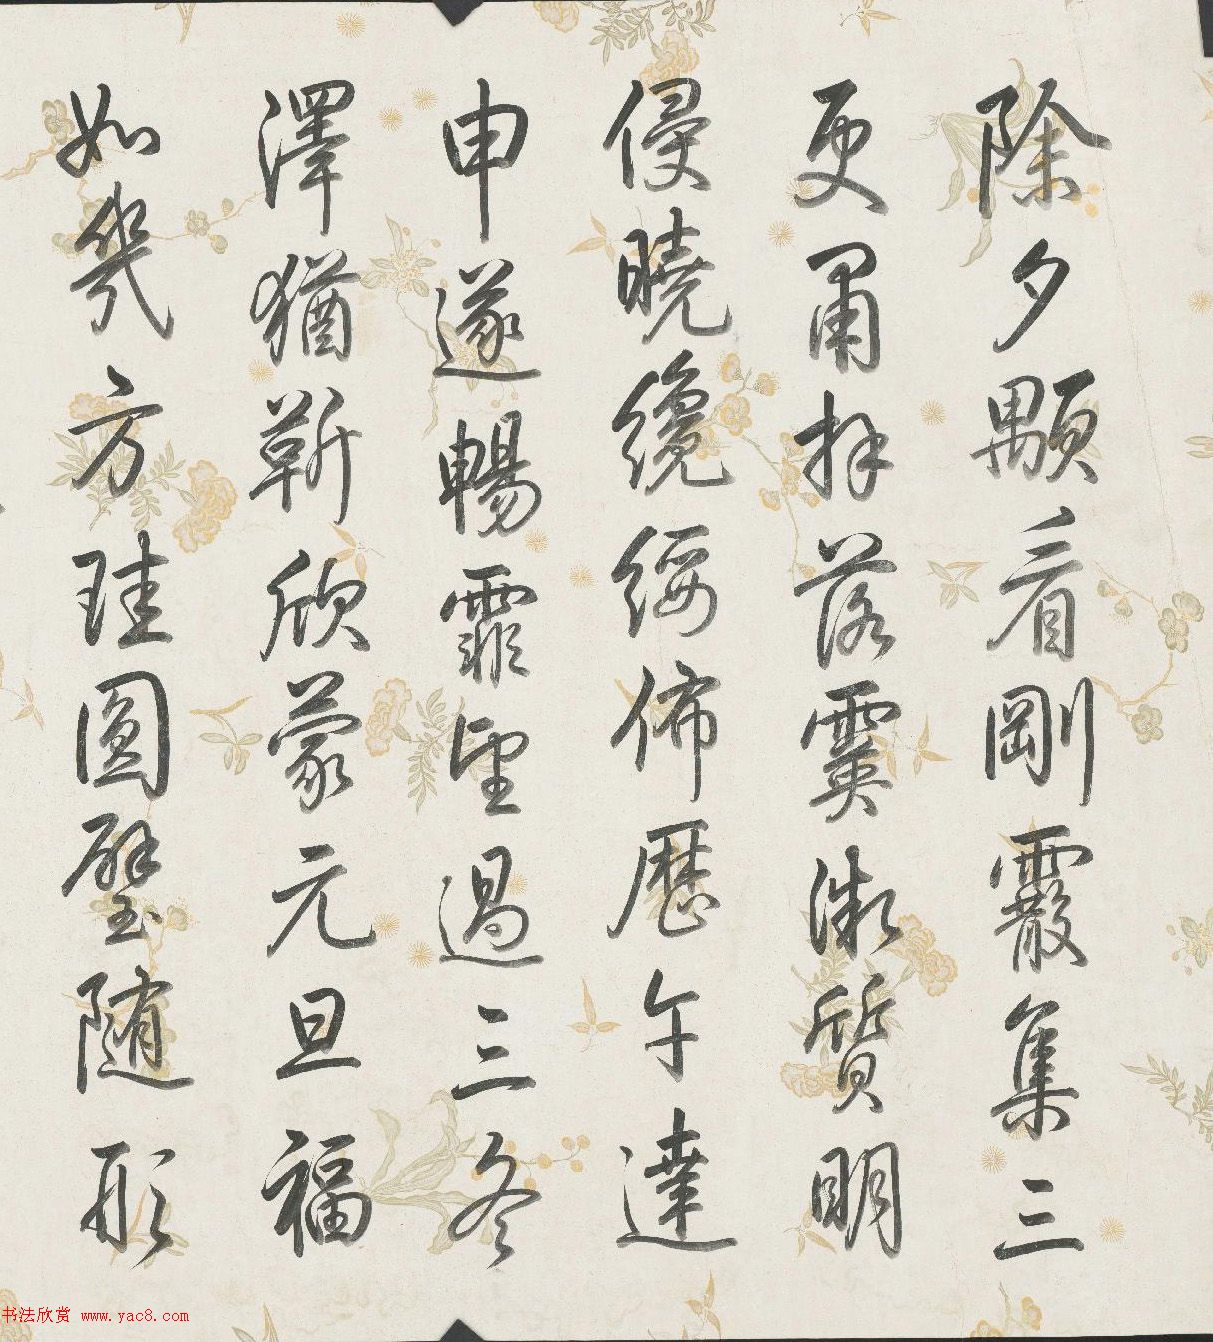 除夕顒看剛霰集三
更甫拜落霙微質明
侵曉纔綏佈歷午達
申遂暢霏望過三冬
澤猶靳欣蒙元旦福
如幾方珪圓璧隨形
书法欣赏 www.yac8.com